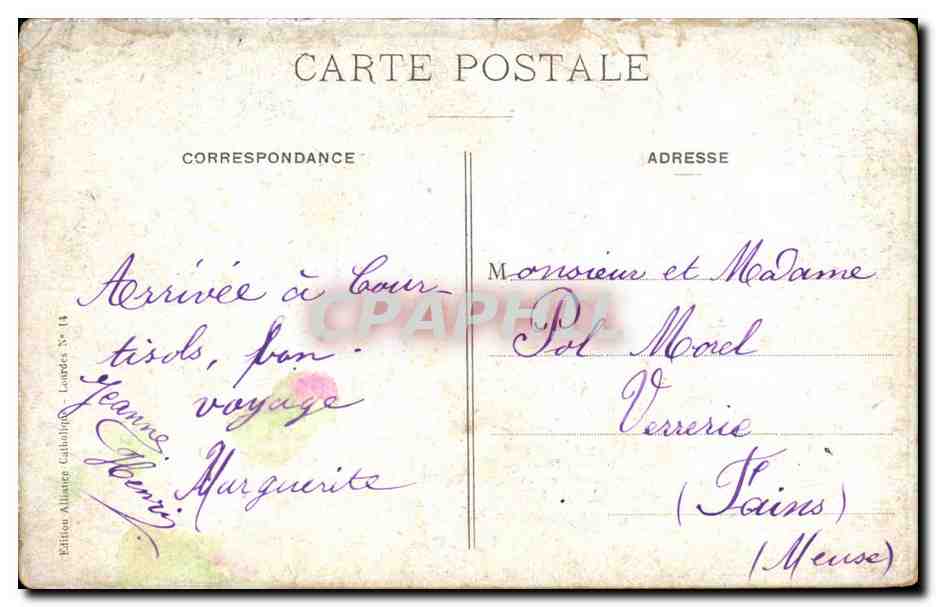 CARTE POSTALE
CORRESPONDANCE
ADRESSE
Arrivée à Cour-
tisols, bon
voyage
Marguerite
Jeanne
Henri
Monsieur et Madame
Pol Morel
Verrerie
(Fains)
(Meuse)
Edition Alliance Catholique - Lourdes N° 14
CPAPHIL